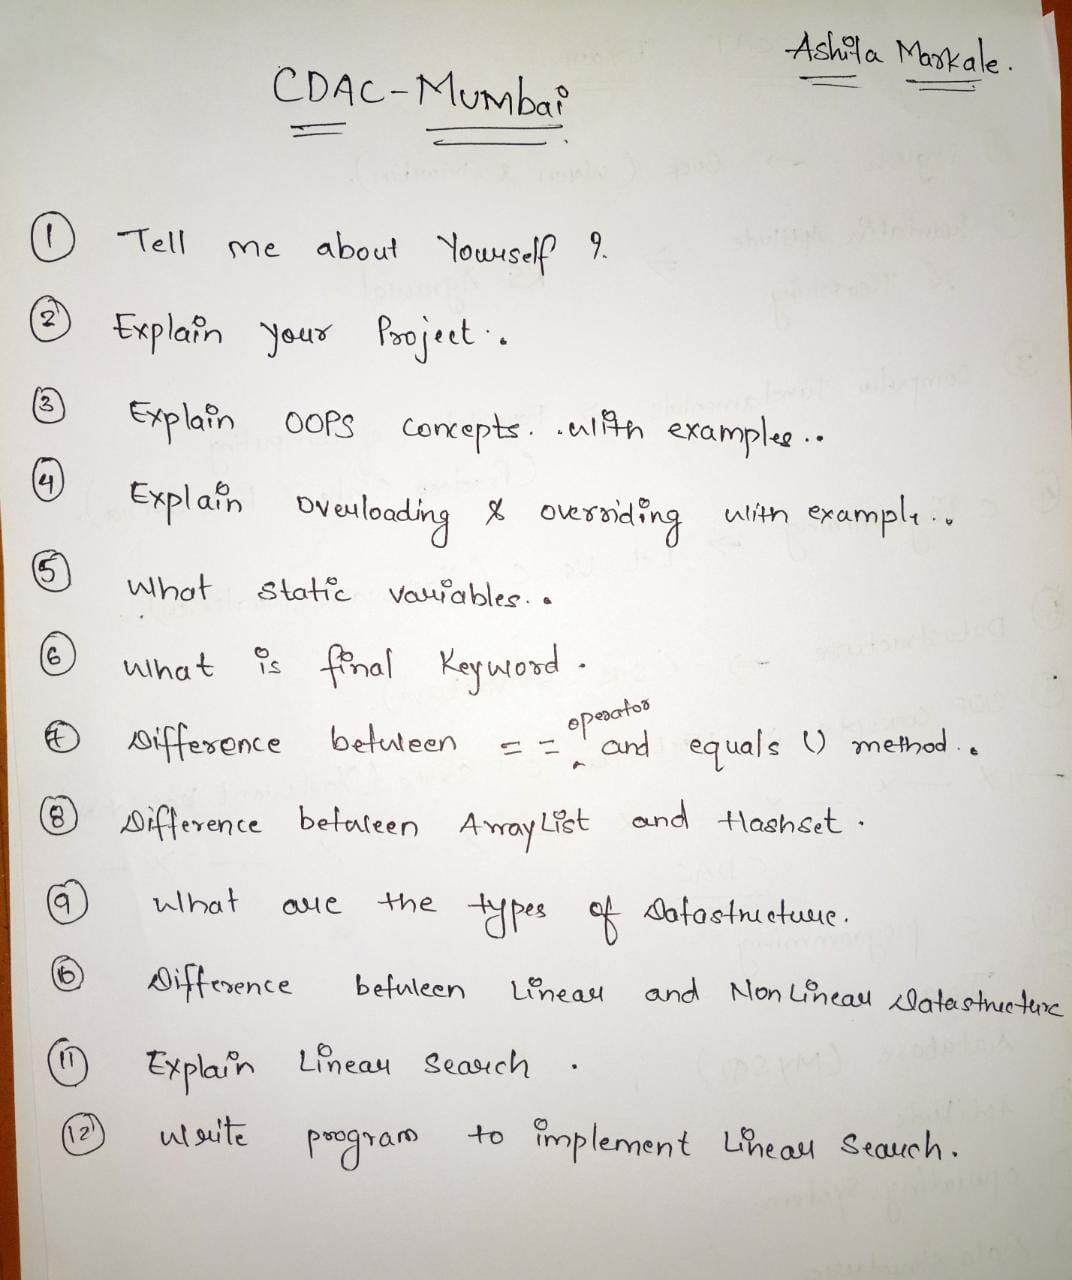 Ashita Markale.
CDAC-Mumbai
1 Tell me about Yourself ?.
2 Explain your Project..
3 Explain OOPS concepts. .with examples..
4 Explain Overloading & overriding with example..
5 What static variables..
6 What is final Keyword.
7 Difference between == operator and equals () method..
8 Difference between ArrayList and Hashset.
9 What are the types of Datastructure.
10 Difference between Linear and Non Linear Datastructure
11 Explain Linear Search.
12 Write program to implement Linear Search.